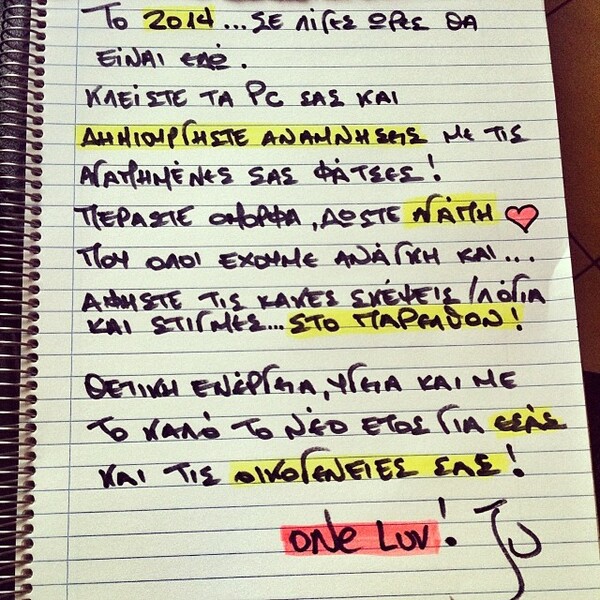 Το 2014...ΣΕ ΛΙΓΕΣ ΩΡΕΣ ΘΑ
ΕΙΝΑΙ εδώ.
ΚΛΕΙΣΤΕ ΤΑ PC ΣΑΣ ΚΑΙ
ΔΗΜΙΟΥΡΓΗΣΤΕ ΑΝΑΜΝΗΣΕΙΣ ΜΕ ΤΙΣ
ΑΓΑΠΗΜΕΝΕΣ ΣΑΣ ΦΑΤΣΕΣ!
ΠΕΡΑΣΤΕ ΟΜΟΡΦΑ, ΔΩΣΤΕ ΑΓΑΠΗ ❤
ΠΟΥ ΟΛΟΙ ΕΧΟΥΜΕ ΑΝΑΓΚΗ ΚΑΙ...
ΑΦΗΣΤΕ ΤΙΣ ΚΑΚΕΣ ΣΚΕΨΕΙΣ/ΛΟΓΙΑ
ΚΑΙ ΣΤΙΓΜΕΣ...ΣΤΟ ΠΑΡΕΛΘΟΝ!
ΘΕΤΙΚΗ ΕΝΕΡΓΕΙΑ, ΥΓΕΙΑ ΚΑΙ ΜΕ
ΤΟ ΚΑΛΟ ΤΟ ΝΕΟ ΕΤΟΣ ΓΙΑ ΕΣΑΣ
ΚΑΙ ΤΙΣ ΟΙΚΟΓΕΝΕΙΕΣ ΣΑΣ!
ONE LUV!